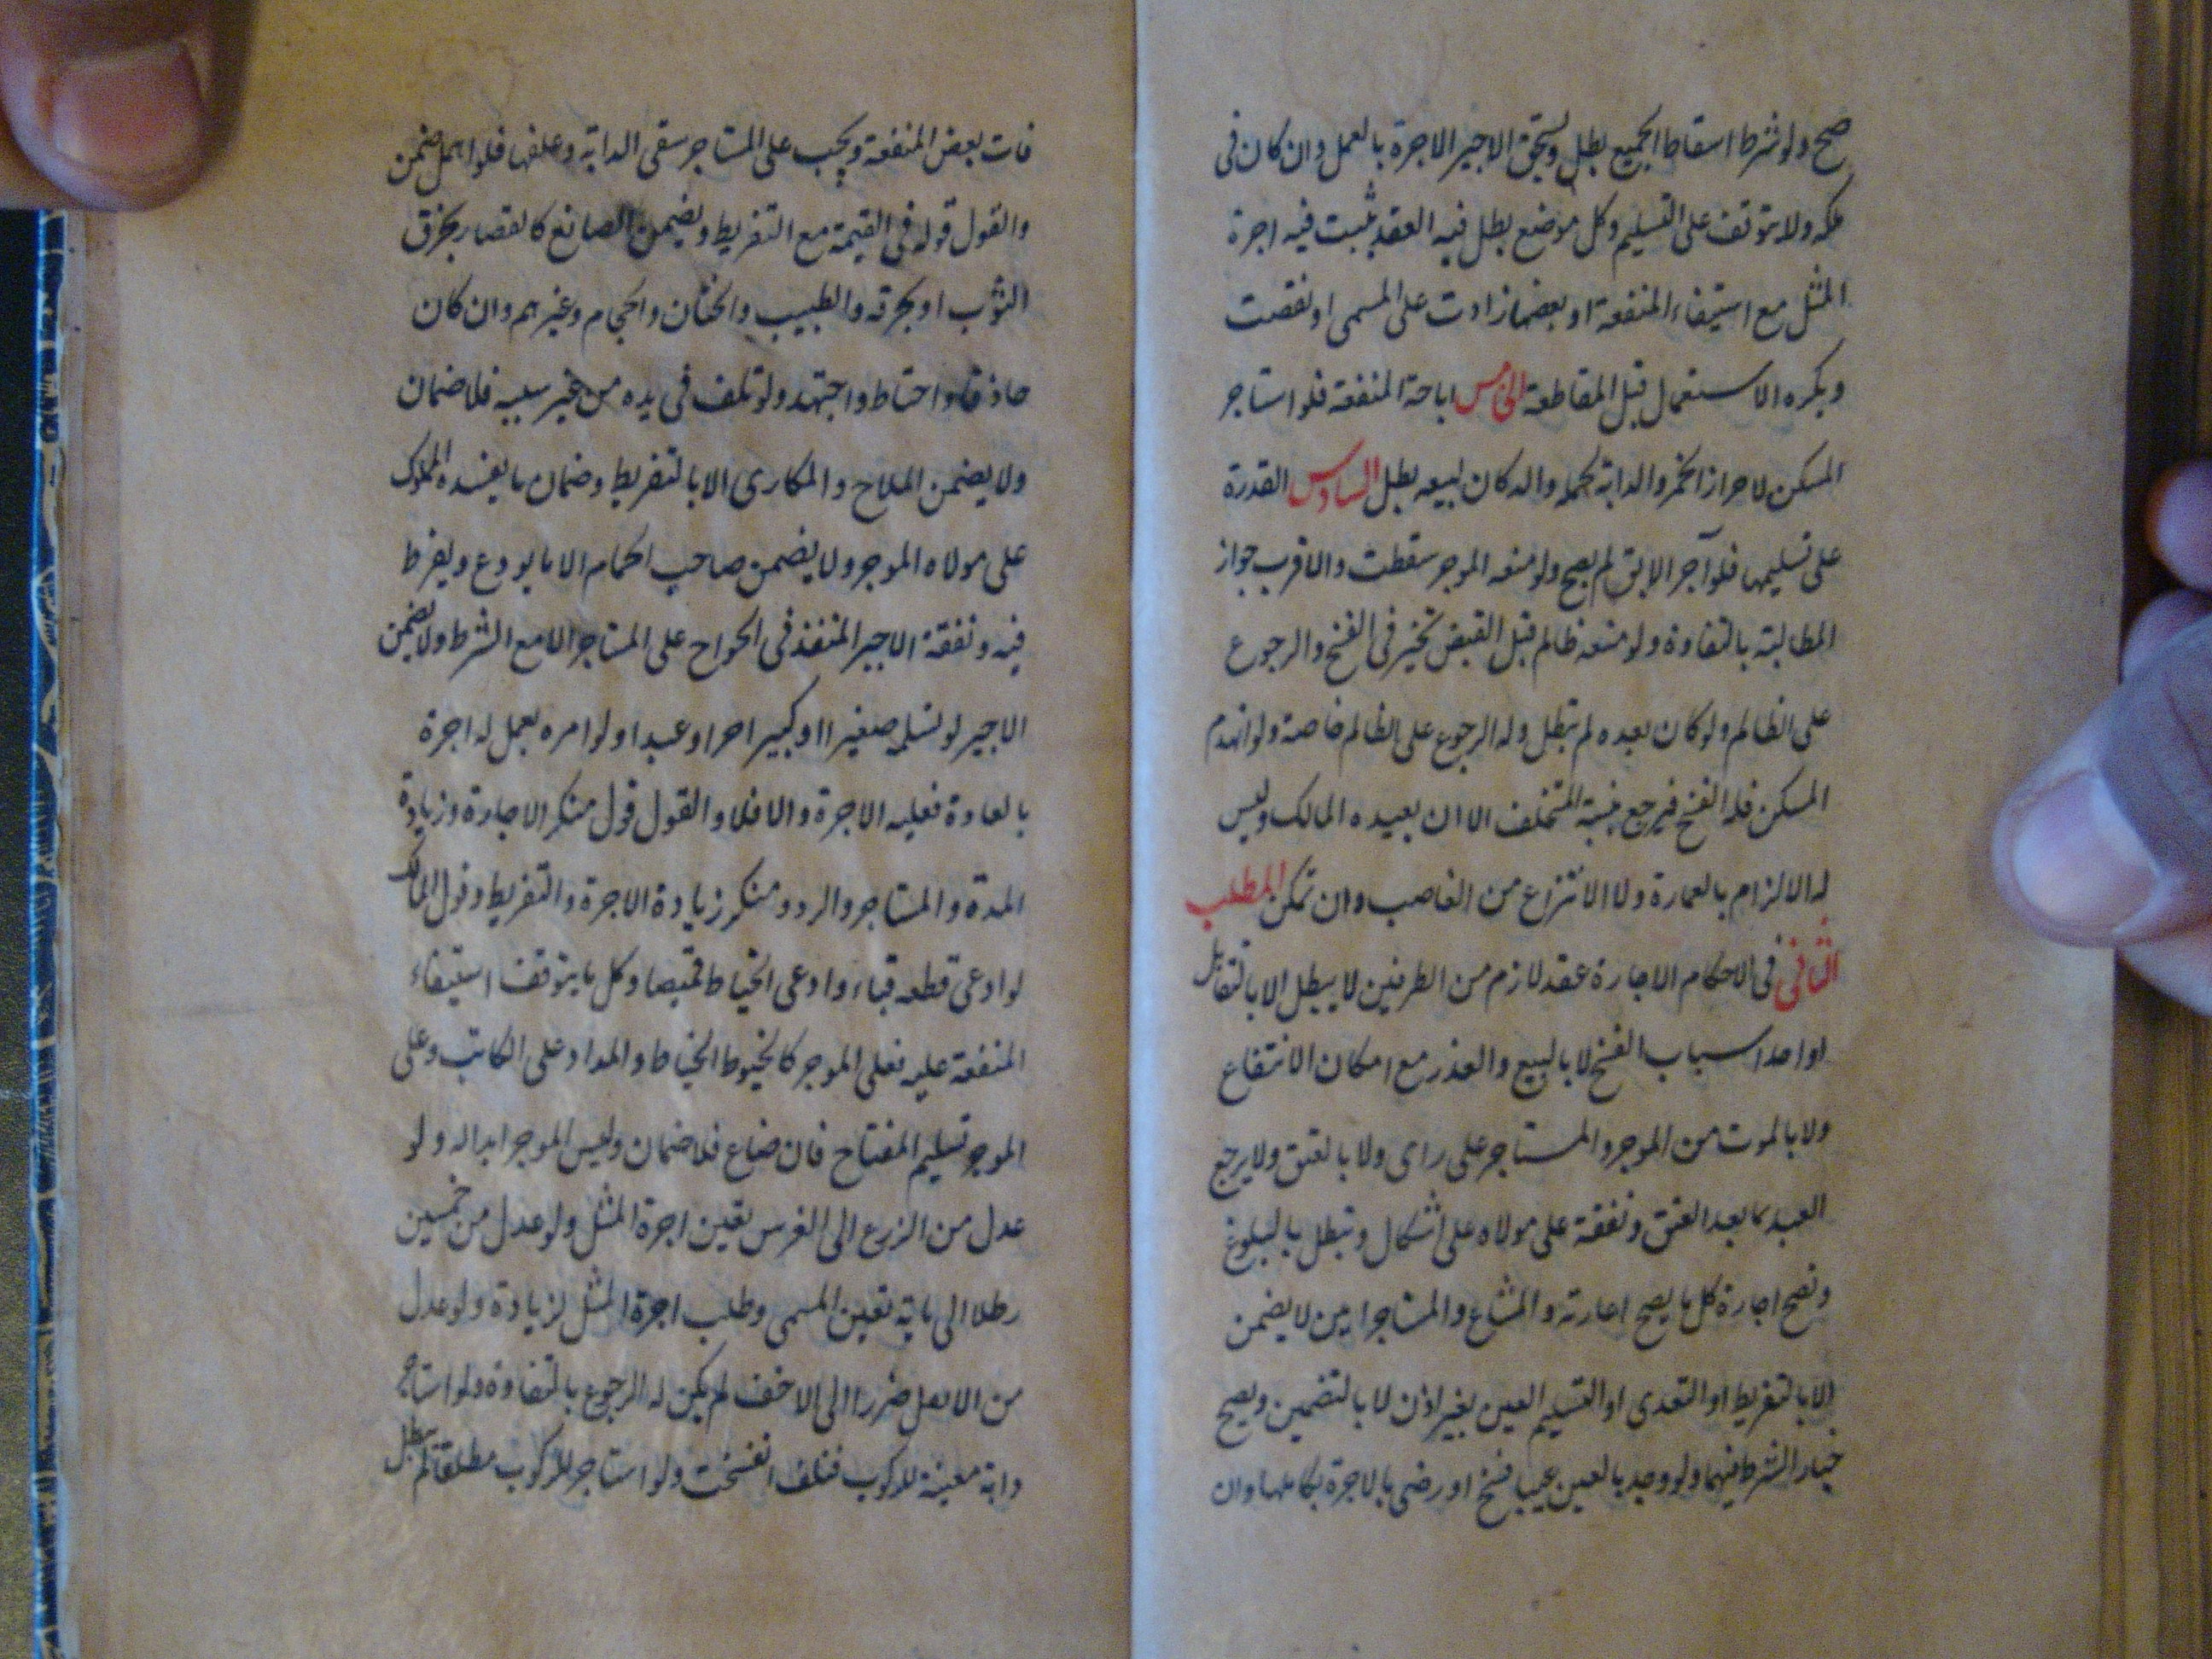 صح ولو شرط اسقاط الجميع بطل ويستحق الاجير الاجرة بالعمل وان كان فى
ملكه ولا يتوقف على التسليم وكل موضع بطل فيه العقد يثبت فيه اجرة
المثل مع استيفاء المنفعة او بعضها زادت على المسمى او نقصت
ويكره الاستعمال قبل المقاطعة الخامس اباحة المنفعة فلو استاجر
المسكن لاحراز الخمر والدابة لحمله والدكان لبيعه بطل السادس القدرة
على تسليمها فلو آجر الابق لم يصح ولو منعه الموجر سقطت والاقرب جواز
المطالبة بالتفاوة ولو منعه ظالم قبل القبض تخير فى الفسخ والرجوع
على الظالم ولو كان بعده لم تبطل وله الرجوع على الظالم خاصة ولو انهدم
المسكن فله الفسخ فيرجع بنسبة المتخلف الا ان يعيده المالك وليس
له الالزام بالعمارة ولا الانتزاع من الغاصب وان تمكن المطلب
الثانى فى الاحكام الاجارة عقد لازم من الطرفين لا يبطل الا بالتقايل
او احد اسباب الفسخ لا بالبيع والعذر مع امكان الانتفاع
ولا بالموت من الموجر والمستاجر على راى ولا بالعتق ولا يرجع
العبد بما بعد العتق ونفقة على مولاه على اشكال وتبطل بالبلوغ
وتصح اجارة كل ما يصح اعارته والمشاع والمستاجر امين لا يضمن
الا بالتفريط او التعدى او التسليم العين بغير اذن لا بالتضمين ويصح
خيار الشرط فيهما ولو وجد بالعين عيبا فسخ او رضى بالاجرة بكاملها وان
فات بعض المنفعة ويجب على المستاجر سقى الدابة وعلفها فلو اهمل ضمن
والقول قوله فى القيمة مع التفريط ويضمن الصانع كالقصار بخرق
الثوب او بحرقه والطبيب والختان والحجام وغيرهم وان كان
حاذقا واحتاط واجتهد ولو تلف فى يده من غير سببه فلا ضمان
ولا يضمن الملاح والمكارى الا بالتفريط وضمان ما يفسده المملوك
على مولاه الموجر ولا يضمن صاحب الحمام الا ما يودع ويفرط
فيه ونفقة الاجير المنفذ فى الحوايج على المستاجر الا مع الشرط ولا يضمن
الاجير لو تسلم صغيرا او كبيرا حرا او عبدا ولو امره بعمل له اجرة
بالعادة فعليه الاجرة والا فلا والقول قول منكر الاجارة وزيادة
المدة والمستاجر والرد ومنكر زيادة الاجرة والتفريط وقول المالك
لو ادعى قطعه قباء وادعى الخياط قميصا وكل ما يتوقف استيفاء
المنفعة عليه فعلى الموجر كالخيوط الخياط والمداد على الكاتب وعلى
الموجر تسليم المفتاح فان ضاع فلا ضمان وليس الموجر ابداله ولو
عدل من الزرع الى الغرس تعين اجرة المثل ولو عدل من خمسين
رطلا الى ماية تعين المسمى وطلب اجرة المثل لزيادة ولو عدل
من الاثقل ضررا الى الاخف لم يكن له الرجوع بالتفاوة ولو استاجر
دابة معينة للركوب فتلف انفسخت ولو استاجر للركوب مطلقا لم تبطل